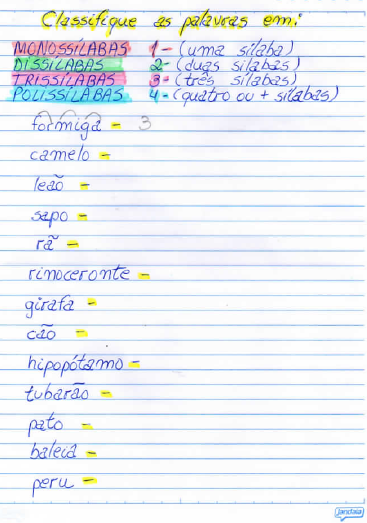 Classifique as palavras em:
MONOSSÍLABAS 1 - (uma sílaba)
DISSÍLABAS 2 - (duas sílabas)
TRISSÍLABAS 3 - (três sílabas)
POLISSÍLABAS 4 - (quatro ou + sílabas)
formiga - 3
camelo -
leão -
sapo -
rã -
rinoceronte -
girafa -
cão -
hipopótamo -
tubarão -
pato -
baleia -
peru -
jandaia